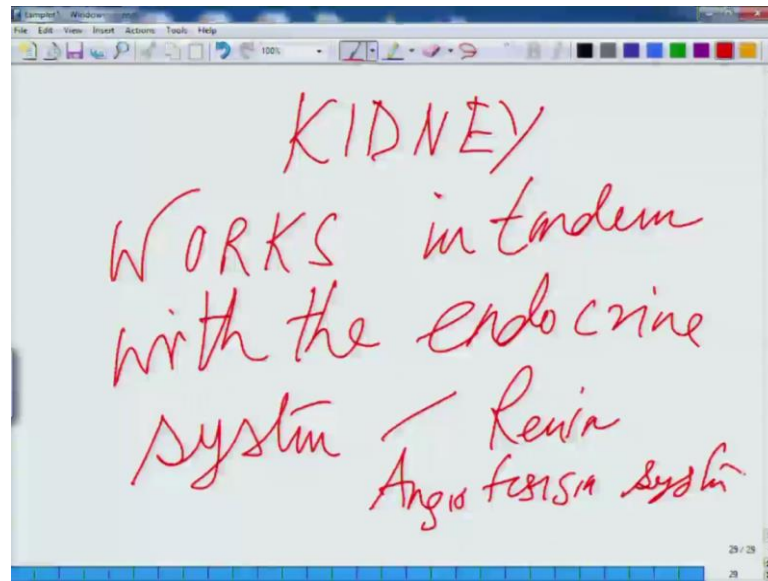 Windows
File Edit View Insert Actions Tools Help
100%
KIDNEY
WORKS in tandem
with the endocrine
system – Renin
Angiotensin system
29 / 29
29